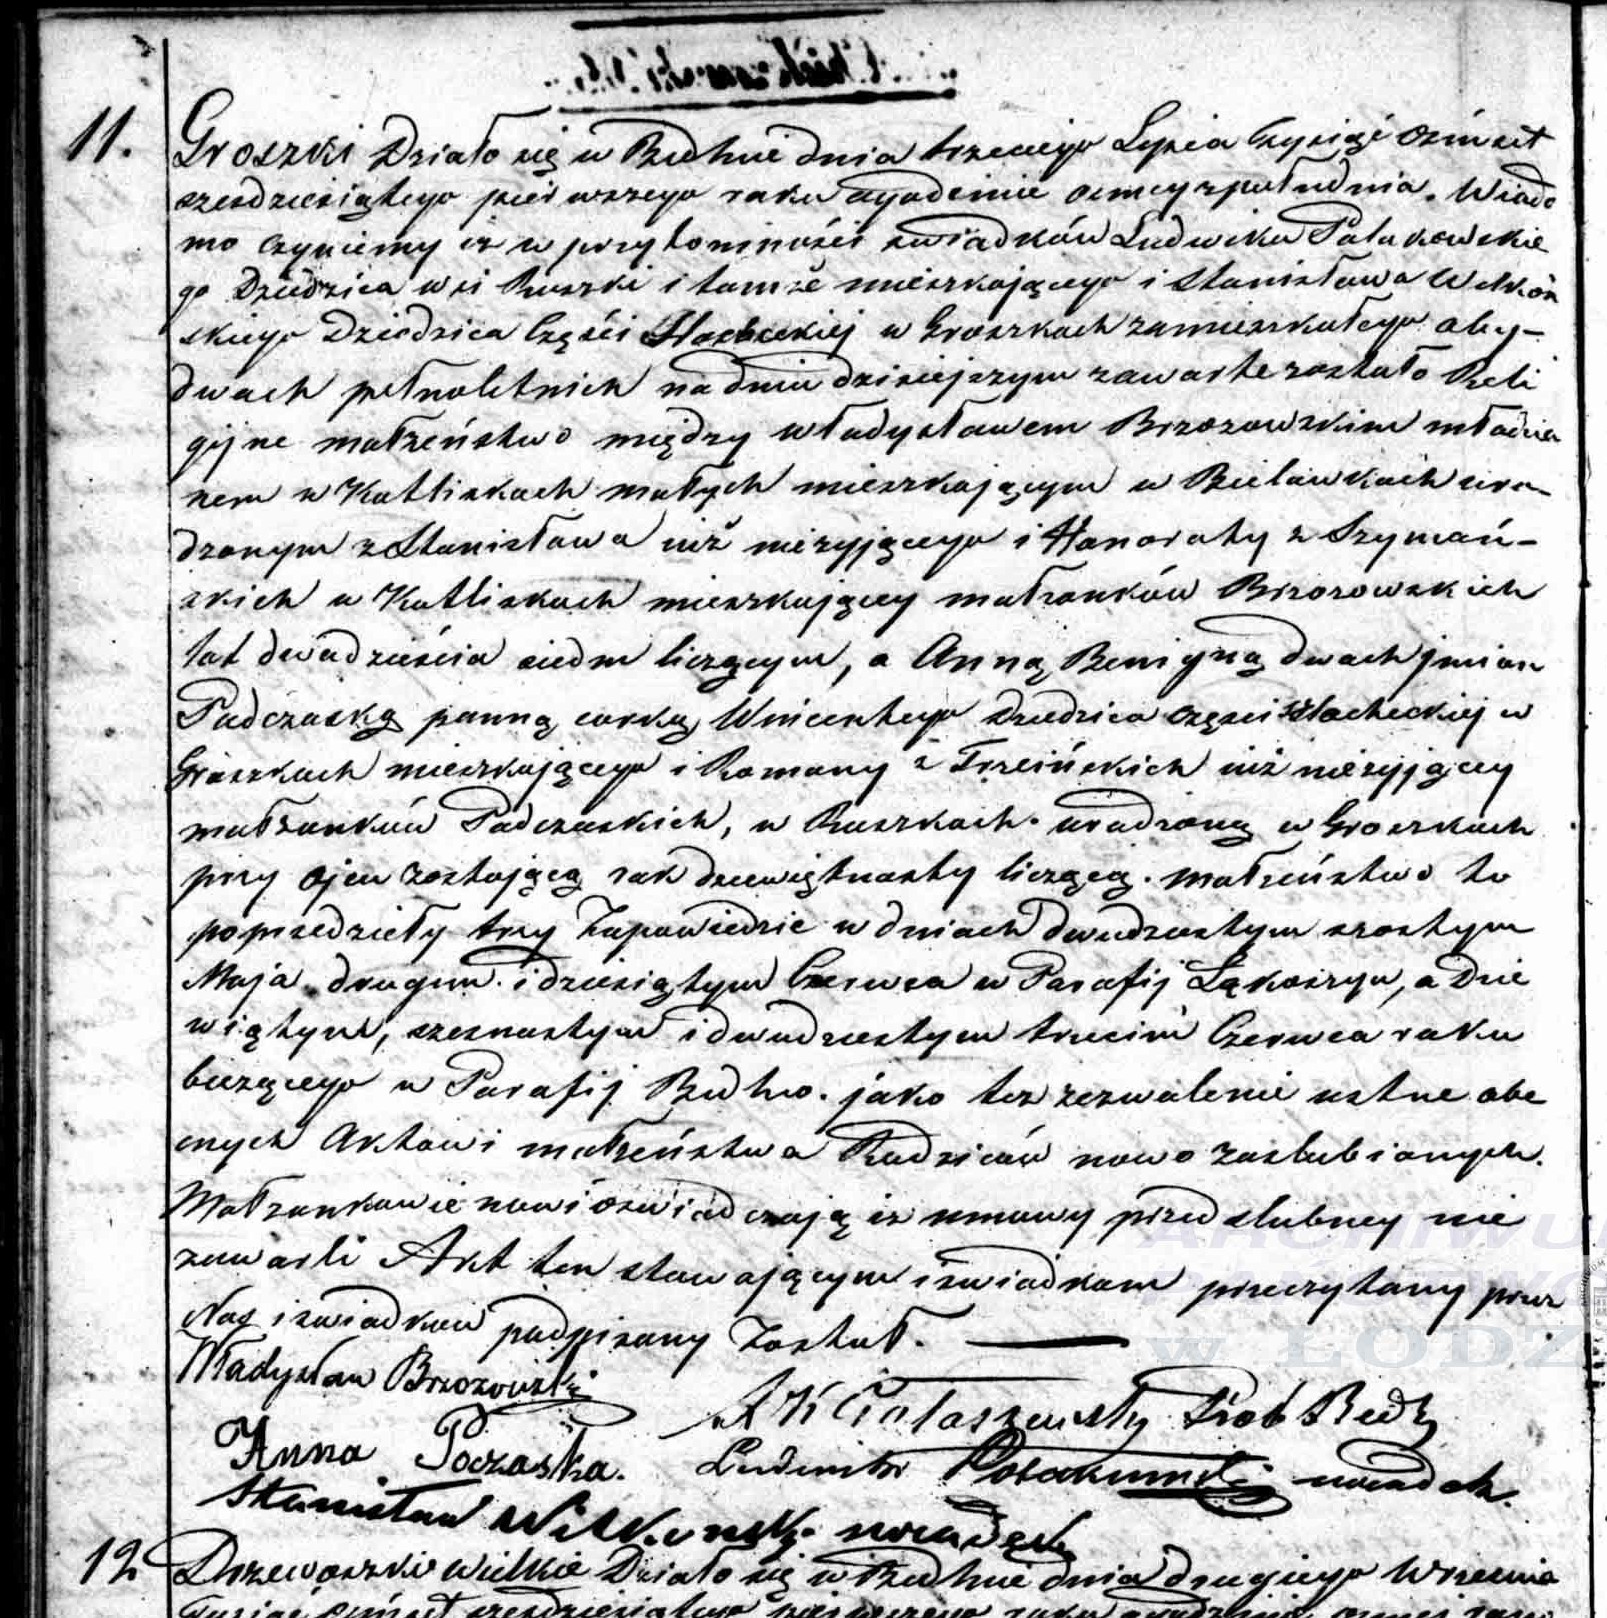 11.
Groszki Działo się w Bedlnie dnia trzeciego Lipca Tysiąc Ośmset
szesdziesiątego pierwszego roku o godzinie osmey z południa. Wiado
mo czyniemy iż w przytomności swiadków Ludwika Polakowskie
go Dziedzica wsi Ruszki i tamże mieszkającego i Stanisława Witkow
skiego Dziedzica Części Szlacheckiej w Groszkach zamieszkałego oby-
dwach pełnoletnich na dniu dzisiejszym zawarte zostało Reli
gijne małżeństwo między Władysławem Brzozowskim młodzia
nem w Kotliskach małych mieszkającym w Bielawkach uro-
dzonym z Stanisława już nieżyjącego i Honoraty z Szymań-
skich w Kotliskach mieszkającey małżonków Brzozowskich
lat dwadzieścia siedm liczącym, a Anną Benigną dwoch jmion
Podczaską panną corką Wincentego Dziedzica części szlacheckiej w
Groszkach mieszkającego i Romany z Trzcińskich już nieżyjącey
małżonków Podczaskich, w Ruszkach urodzoną w Groszkach
przy ojcu zostającą rok dziewiętnasty liczącą. Małżeństwo to
poprzedziły trzy Zapowiedzie w dniach dwudziestym szostym
Maja drugim i dziesiątym Czerwca w Parafij Łąkoszyn, a Dzie
wiątym, szesnastym i dwudziestym trzecim Czerwca roku
bieżącego w Parafij Bedlno. jako też zezwolenie ustne obe
cnych Aktowi małżeństwa Rodziców nowo zaslubionych.
Małżonkowie nowi oswiadczają iż umowy przedslubney nie
zawarli Akt ten stawającym i swiadkom przeczytany przez
Nas i swiadków podpisany Został.
Władysław Brzozowski
X K Gołaszewski Prob Bedl
Anna Poczaska. Ludwik Polakowski swiadek.
Stanisław Witkowski swiadek
12 Drzewoszki wielkie Działo się w Bedlnie dnia drugiego Wrzesnia
Tysiąc Ośmset szesdziesiątego pierwszego roku o godzinie
ARCHIWUM
PAŃSTWOWE
w ŁODZI